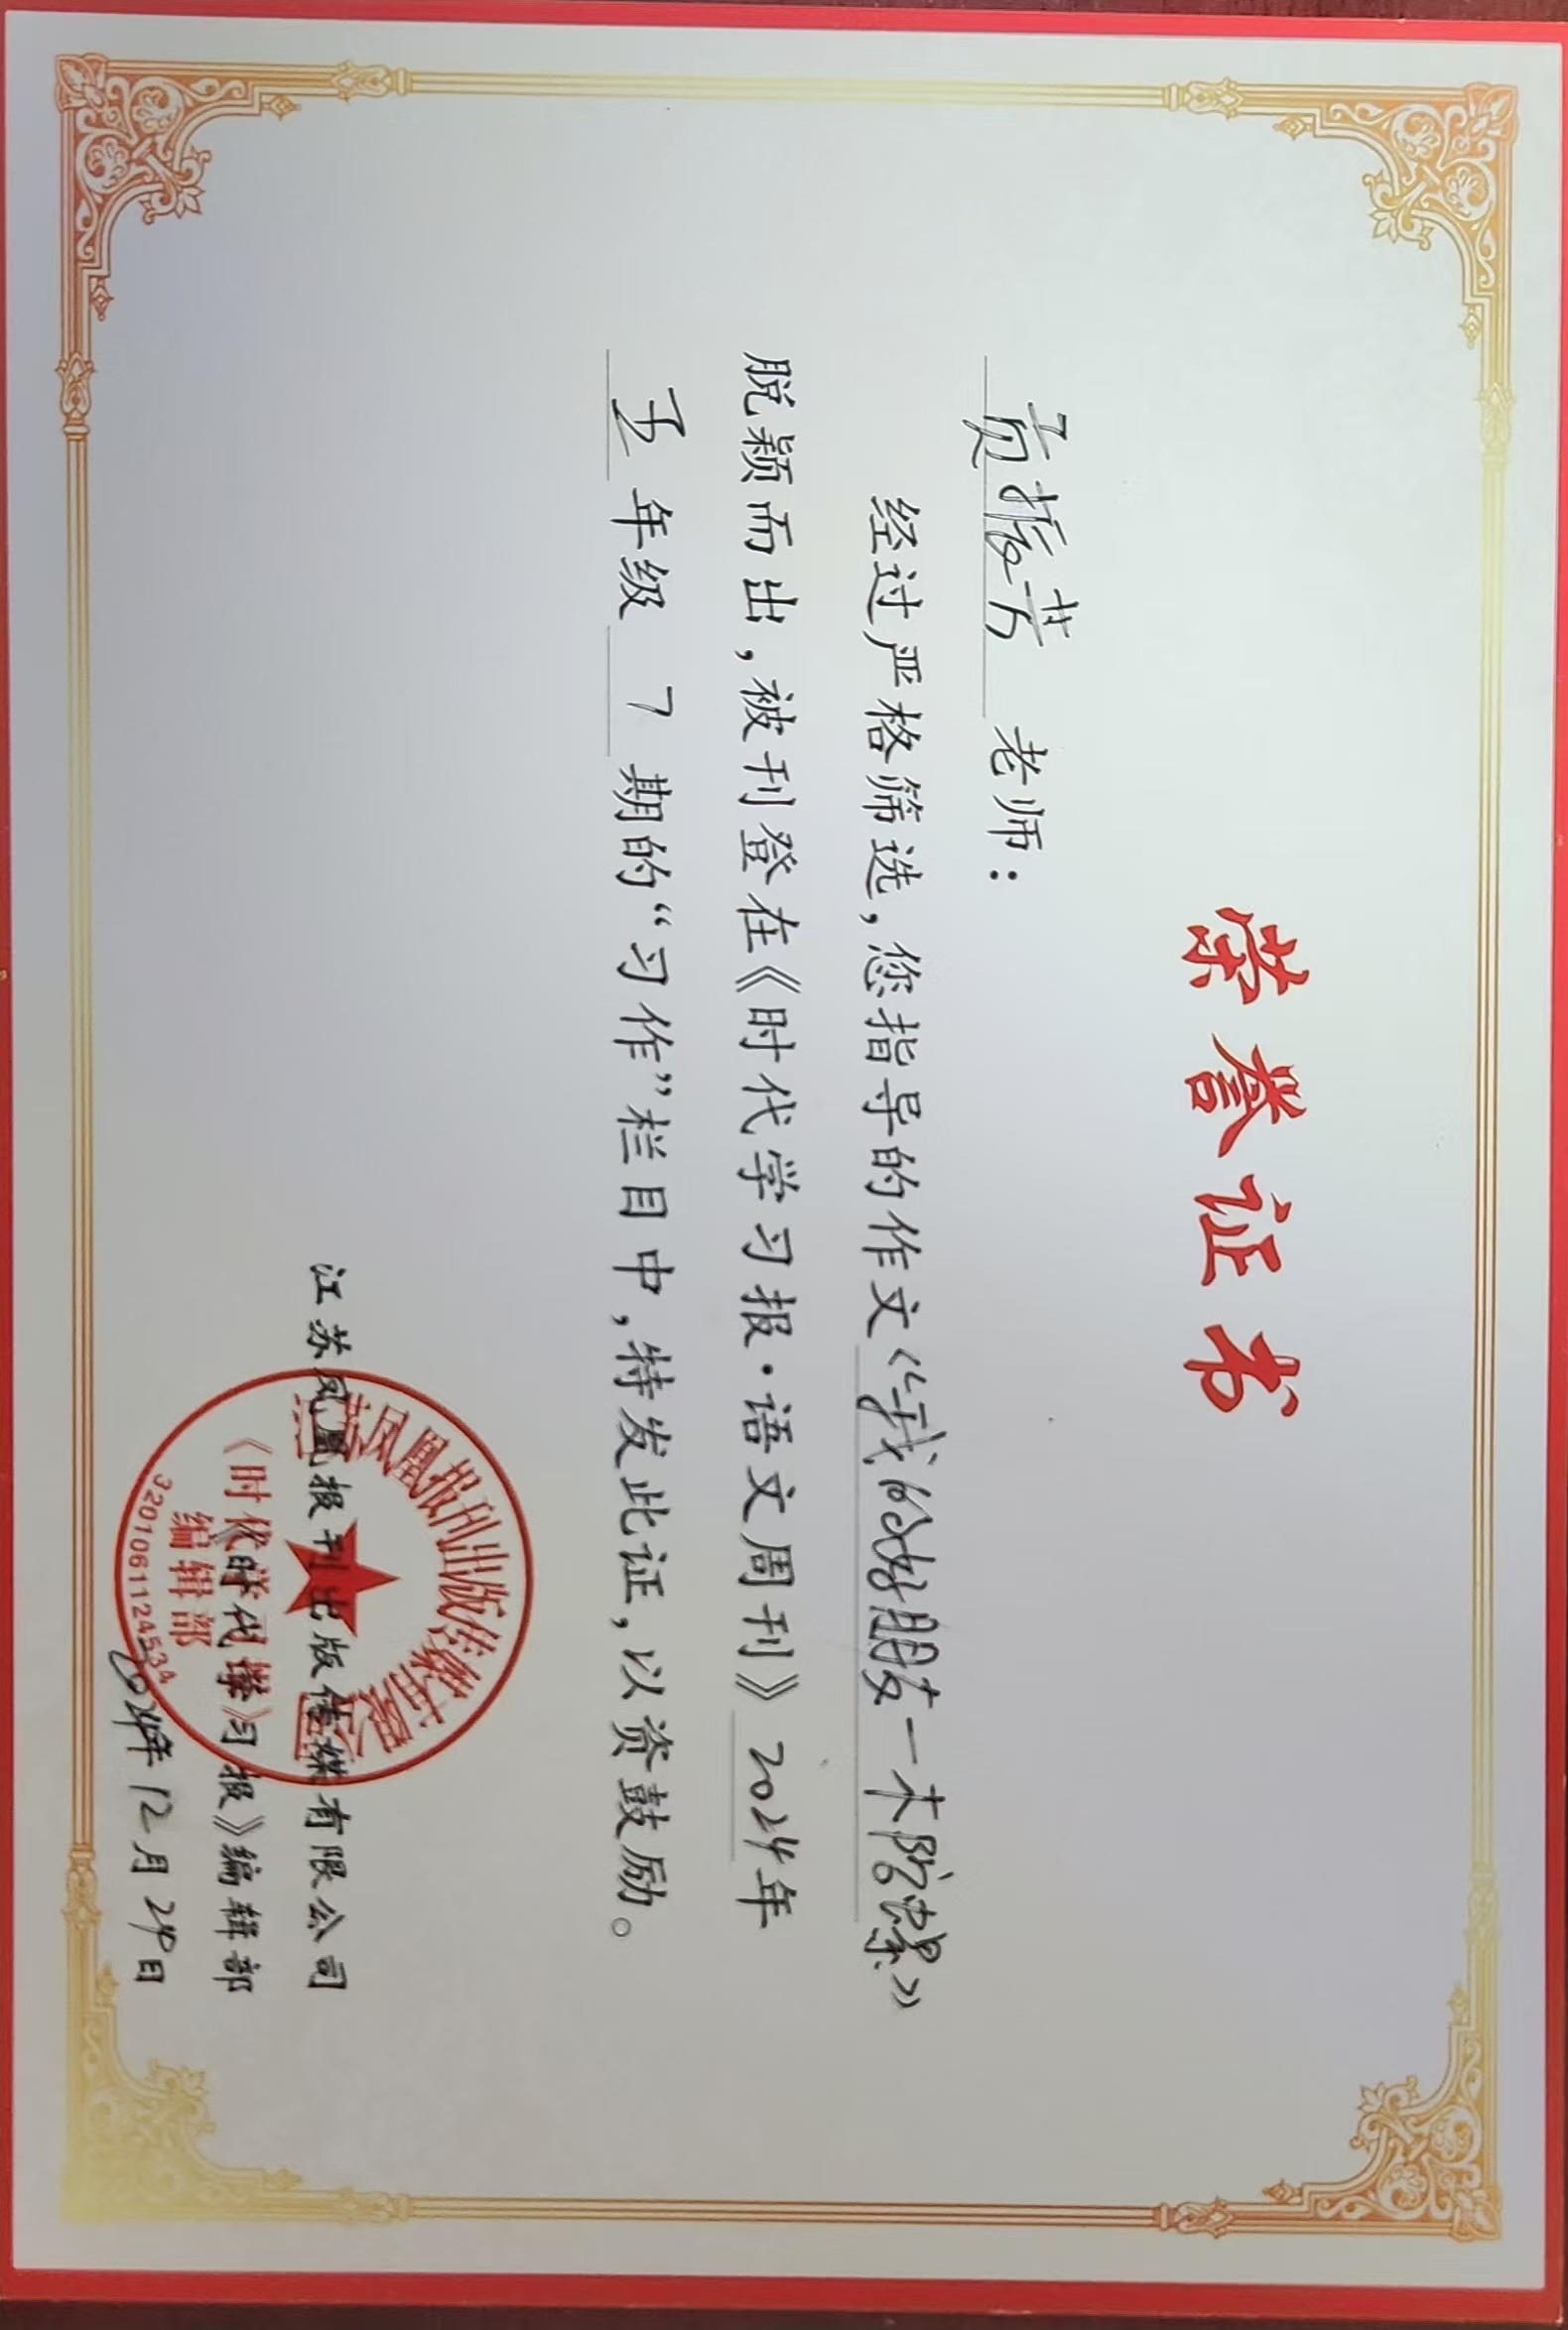 荣誉证书
贡振芳 老师：
经过严格筛选，您指导的作文《我的好朋友—木陀螺》
脱颖而出，被刊登在《时代学习报·语文周刊》2024年
五年级 7 期的“习作”栏目中，特发此证，以资鼓励。
江苏凤凰报刊出版传媒有限公司
《时代学习报》编辑部
2024年12月29日
江苏凤凰报刊出版传媒有限公司
《时代学习报》
编辑部
3201061124534